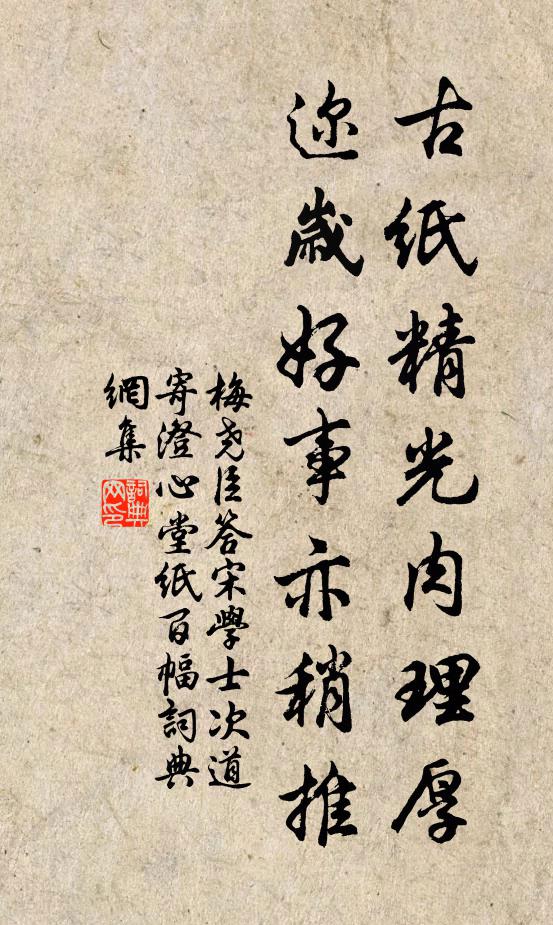 古紙精光肉理厚
邇歲好事亦稍推
梅堯臣答宋學士次道
寄澄心堂紙百幅詞典
網集
詞典
网印